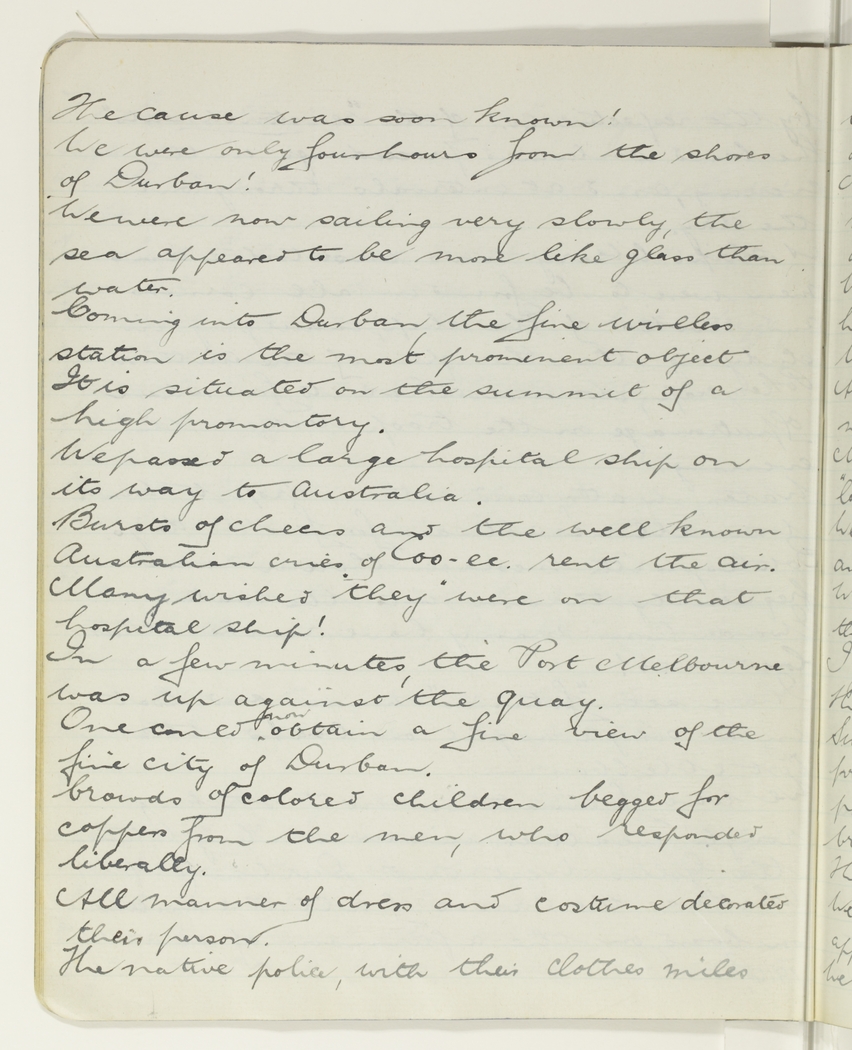 The cause was soon known!
We were only four hours from the shores
of Durban!
We were now sailing very slowly, the
sea appeared to be more like glass than
water.
Coming into Durban, the fine wireless
station is the most prominent object
It is situated on the summit of a
high promontory.
We passed a large hospital ship on
its way to Australia.
Bursts of cheers and the well known
Australian cries of Coo-ee. rent the air.
Many wished "they" were on that
hospital ship!
In a few minutes, the Port Melbourne
was up against the quay.
One could now obtain a fine view of the
fine city of Durban.
Crowds of colored children begged for
coppers from the men, who responded
liberally.
All manner of dress and costume decorated
their person.
The native police, with their clothes miles